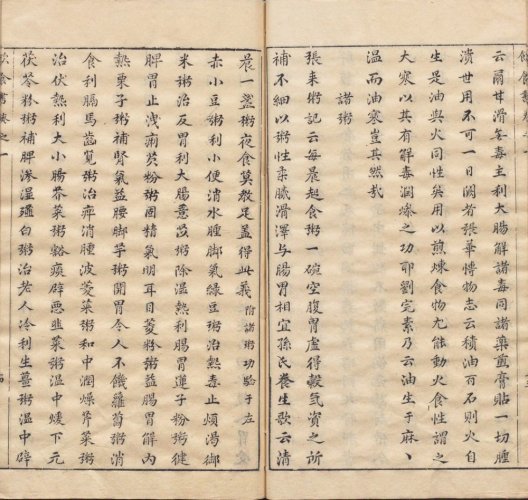 云爾甘滑無毒主利大腸解諸毒同諸藥煎膏貼一切腫
潰世用不可一日闕者張華博物志云積油百石則火自
生是油與火同性與用以煎煉食物尤能動火食性謂之
大寒以其有解毒潤燥之功耶劉完素乃云油生于麻、
溫而油寒豈其然哉
諸粥
張耒粥記云每晨起食粥一碗空腹胃虛得穀氣資之所
補不細以粥性柔膩滑澤与腸胃相宜孫氏養生歌云清
晨一盞粥夜食莫教足蓋得此義附諸粥功驗于左
赤小豆粥利小便消水腫脚氣綠豆粥治熱毒止煩渴御
米粥治反胃利大腸薏苡粥除湿熱利腸胃蓮子粉粥健
脾胃止洩痢芡粉粥固精氣明耳目菱粉粥益腸胃解內
熱栗子粥補腎氣益腰脚芋粥開胃令人不饑蘿蔔粥消
食利膈馬齒莧粥治痹消腫波薐菜粥和中潤燥芹菜粥
治伏熱利大小腸芥菜粥豁痰辟惡韭菜粥溫中煖下元
茯苓粉粥補脾滲湿薤白粥治老人冷利生薑粥溫中辟